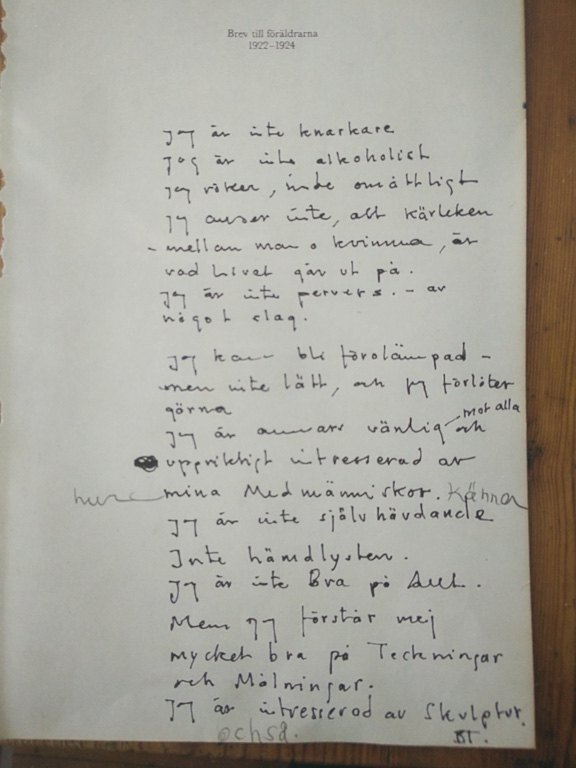 Brev till föräldrarna
1922–1924
jag är inte knarkare
jag är inte alkoholist
jag röker, inte omåttligt
jag anser inte, att kärleken
- mellan man o kvinna, är
vad livet går ut på.
jag är inte pervers. - av
något slag.
jag kan bli förolämpad -
men inte lätt, och jag förlåter
görna
mot alla
jag är annars vänlig och
uppriktigt intresserad av
mina Medmänniskor. Känner
jag är inte självhävdande
Inte hämdlysten.
jag är inte Bra på Allt.
Men jag förstår mej
mycket bra på Teckningar
och Målningar.
jag är intresserad av Skulptur.
också. BT.